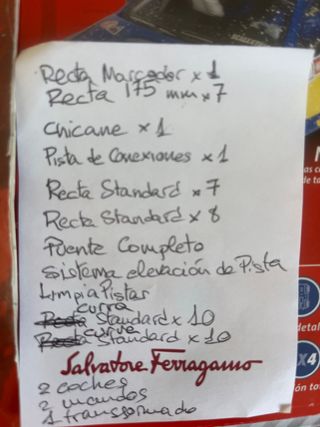 Recta Marcador x 1
Recta 175 mm x 7
chicane x 1
Pista de Conexiones x 1
Recta Standard x 7
Recta Standard x 8
Puente Completo
Sistema elevación de Pista
Limpia Pistas
curva
Recta Standard x 10
curva
Recta Standard x 10
Salvatore Ferragamo
2 coches
2 mandos
1 transformado
x4